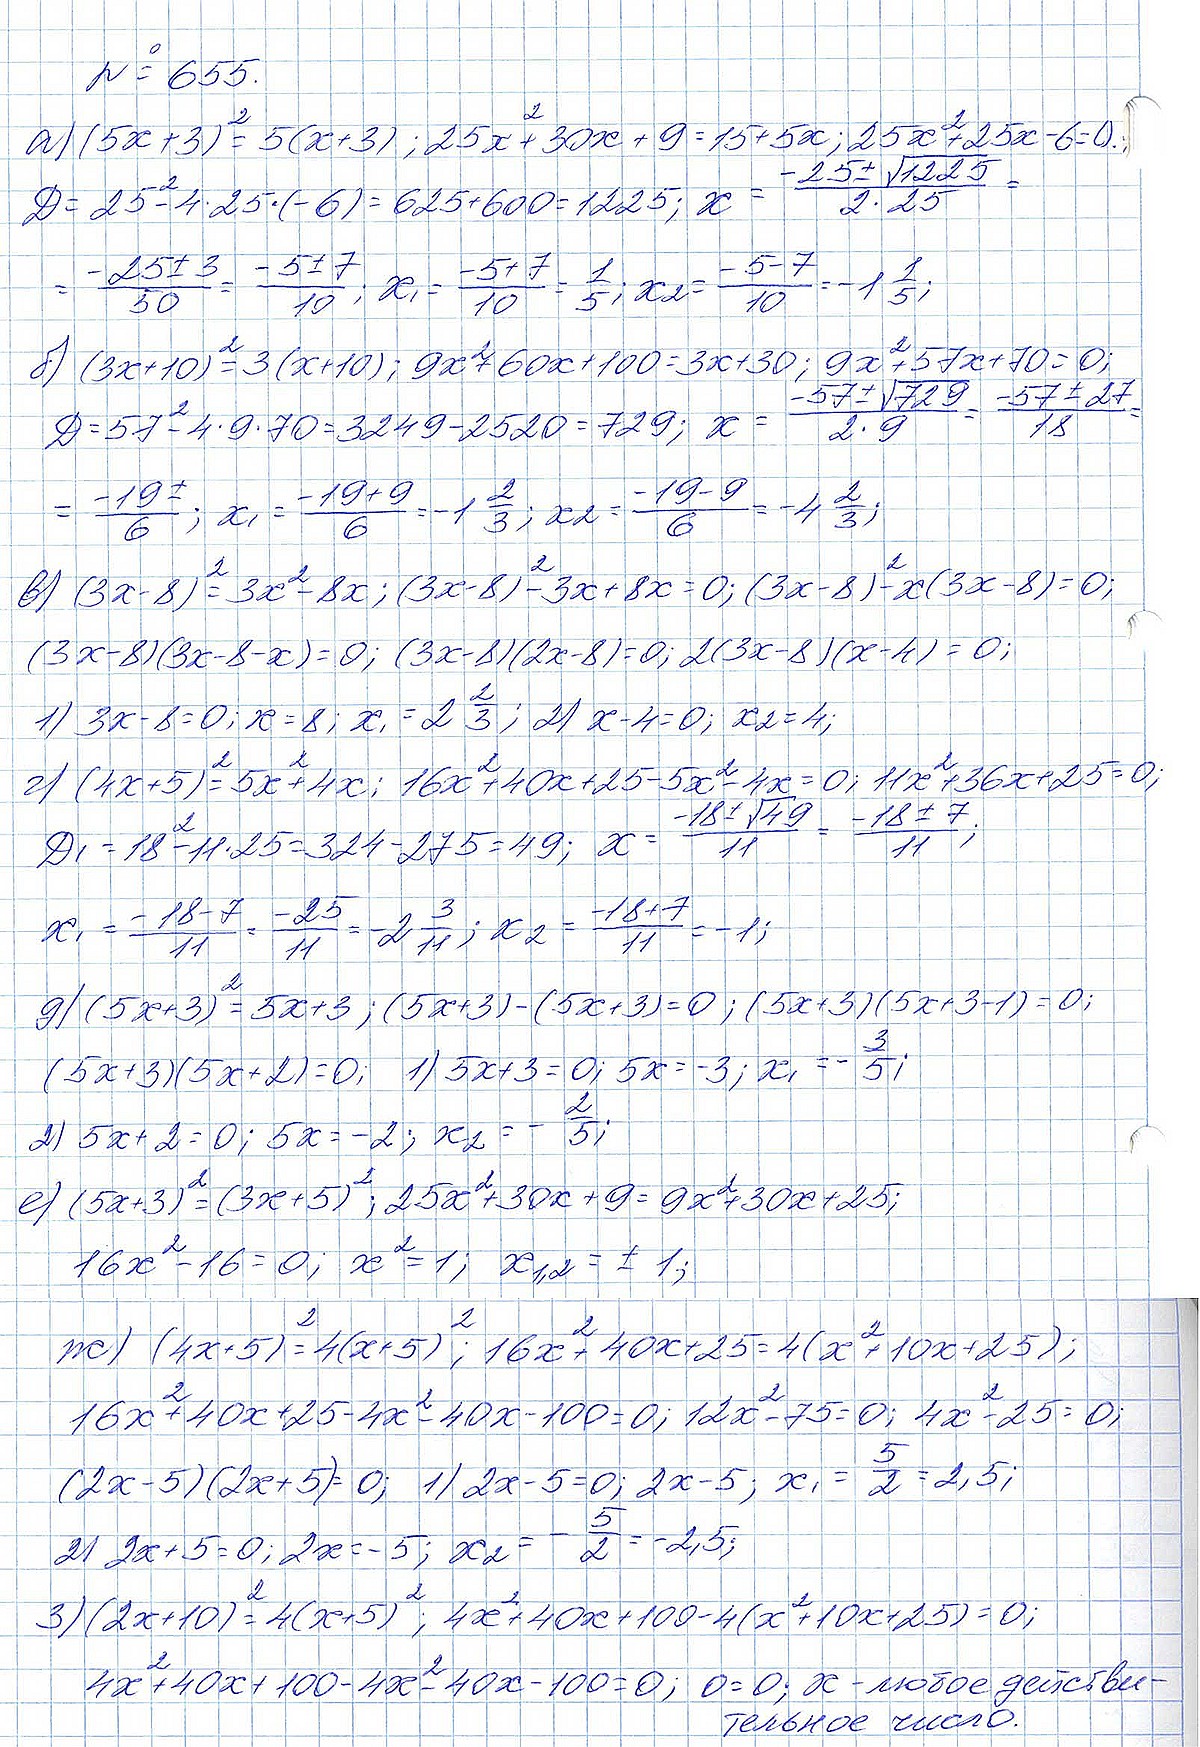 № 655.
а) (5x+3)² = 5(x+3); 25x²+30x+9=15+5x; 25x²+25x-6=0.
Д = 25²-4·25·(-6) = 625+600=1225; x = (-25±√1225)/(2·25) =
= (-25±3)/50 = (-5±7)/10; x₁ = (-5+7)/10 = 1/5; x₂ = (-5-7)/10 = -1 1/5;
б) (3x+10)² = 3(x+10); 9x²+60x+100=3x+30; 9x²+57x+70=0;
Д = 57²-4·9·70=3249-2520=729; x = (-57±√729)/(2·9) = (-57±27)/18 =
= (-19±)/6; x₁ = (-19+9)/6 = -1 2/3; x₂ = (-19-9)/6 = -4 2/3;
в) (3x-8)² = 3x²-8x; (3x-8)²-3x+8x=0; (3x-8)²-x(3x-8)=0;
(3x-8)(3x-8-x)=0; (3x-8)(2x-8)=0; 2(3x-8)(x-4)=0;
1) 3x-8=0; x=8; x₁ = 2 2/3; 2) x-4=0; x₂=4;
г) (4x+5)² = 5x²+4x; 16x²+40x+25-5x²-4x=0; 11x²+36x+25=0;
Д₁ = 18²-11·25=324-275=49; x = (-18±√49)/11 = (-18±7)/11;
x₁ = (-18-7)/11 = -25/11 = -2 3/11; x₂ = (-18+7)/11 = -1;
д) (5x+3)² = 5x+3; (5x+3)-(5x+3)=0; (5x+3)(5x+3-1)=0;
(5x+3)(5x+2)=0; 1) 5x+3=0; 5x=-3; x₁ = -3/5;
2) 5x+2=0; 5x=-2; x₂ = -2/5;
е) (5x+3)² = (3x+5)²; 25x²+30x+9=9x²+30x+25;
16x²-16=0; x²=1; x₁,₂ = ±1;
ж) (4x+5)² = 4(x+5)²; 16x²+40x+25=4(x²+10x+25);
16x²+40x+25-4x²-40x-100=0; 12x²-75=0; 4x²-25=0;
(2x-5)(2x+5)=0; 1) 2x-5=0; 2x-5; x₁ = 5/2 = 2,5;
2) 2x+5=0; 2x=-5; x₂ = -5/2 = -2,5;
з) (2x+10)² = 4(x+5)²; 4x²+40x+100-4(x²+10x+25)=0;
4x²+40x+100-4x²-40x-100=0; 0=0; x - любое действи-
тельное число.